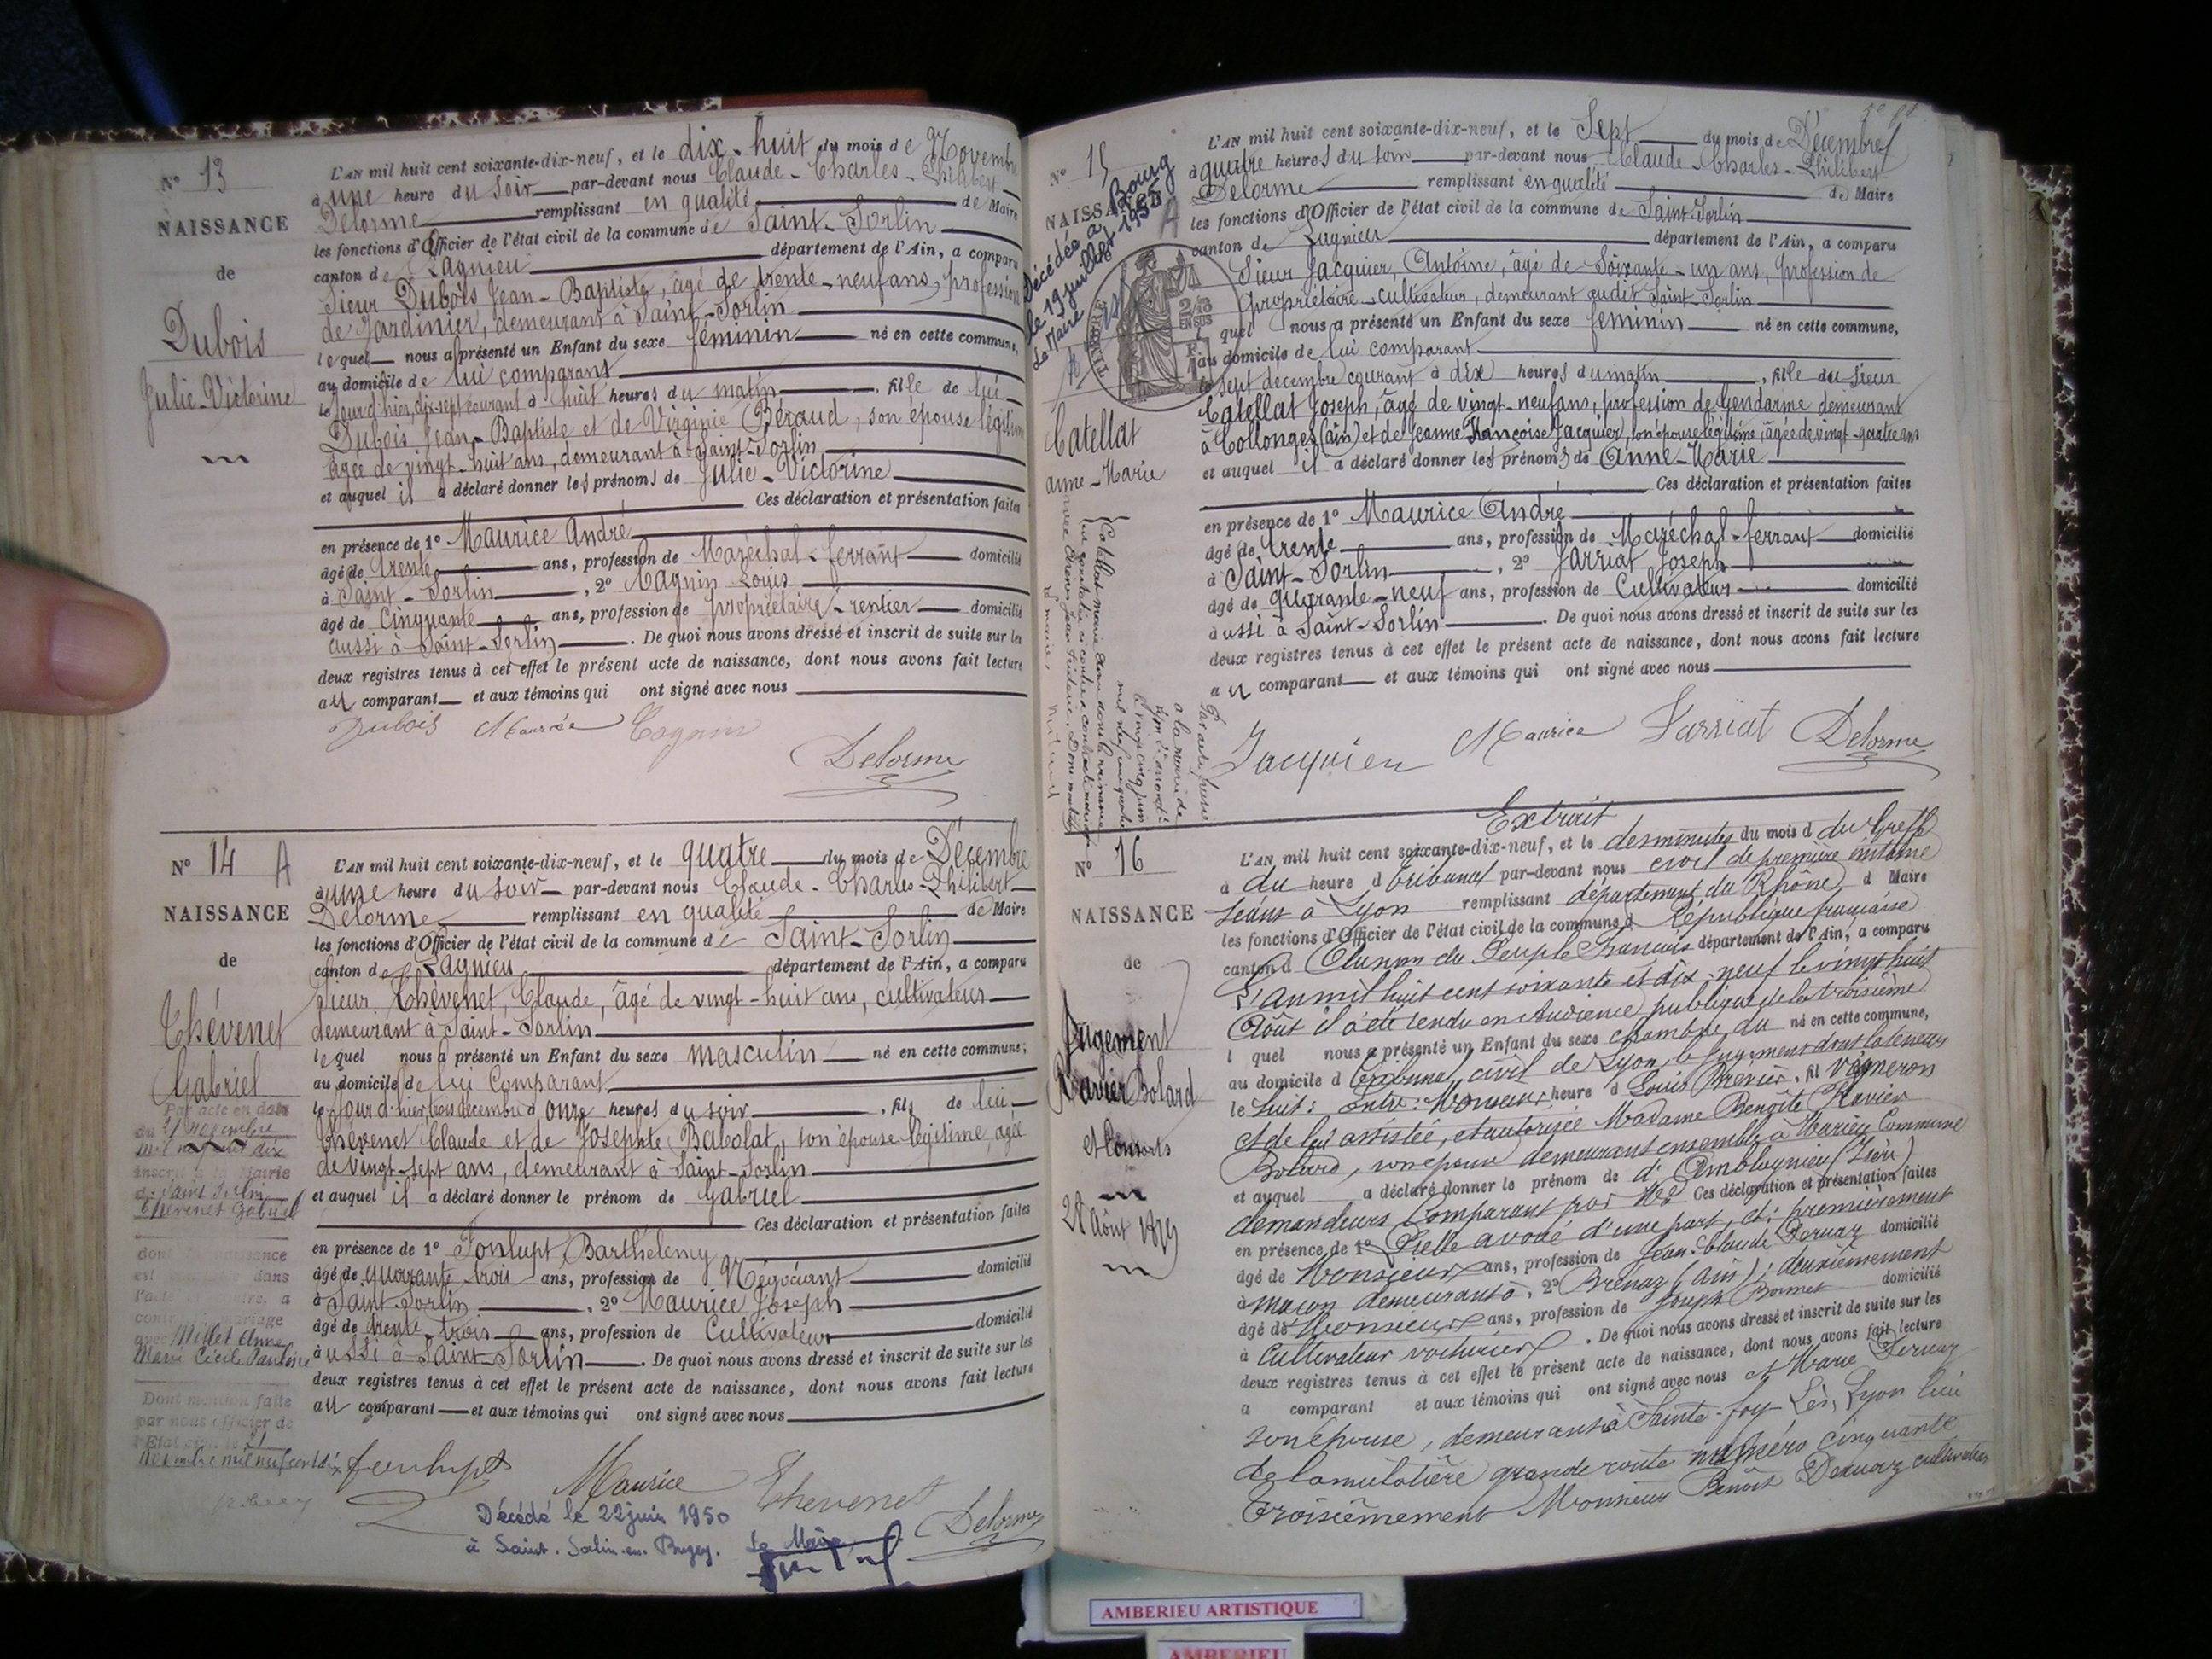 N° 13
NAISSANCE
de
Dubois
Julie-Victorine
L'AN mil huit cent soixante-dix-neuf, et le dix-huit du mois de Novembre
à une heure du soir par-devant nous Claude-Charles-Philibert
Delorme remplissant en qualité de Maire
les fonctions d'Officier de l'état civil de la commune de Saint-Sorlin
canton de Lagnieu département de l'Ain, a comparu
Sieur Dubois Jean-Baptiste, âgé de trente-neuf ans, profession
de Jardinier, demeurant à Saint-Sorlin
lequel nous a présenté un Enfant du sexe féminin né en cette commune,
au domicile de lui comparant
le jour d'hier, dix-sept courant à huit heures du matin, fille de lui
Dubois Jean-Baptiste et de Virginie Béraud, son épouse légitime
âgée de vingt-huit ans, demeurant à Saint-Sorlin
et auquel il a déclaré donner les prénoms de Julie-Victorine
Ces déclaration et présentation faites
en présence de 1° Maurice André
âgé de trente ans, profession de Maréchal-ferrant domicilié
à Saint-Sorlin, 2° Cagnin Louis
âgé de Cinquante ans, profession de propriétaire-rentier domicilié
aussi à Saint-Sorlin. De quoi nous avons dressé et inscrit de suite sur les
deux registres tenus à cet effet le présent acte de naissance, dont nous avons fait lecture
au comparant et aux témoins qui ont signé avec nous
Dubois Maurice Cagnin
Delorme
N° 14 A
NAISSANCE
de
Thévenet
Gabriel
Par acte en date
du 21 novembre
mil neuf cent dix
inscrit à la Mairie
de Saint Sorlin
Thévenet Gabriel
dont la naissance
est dans
l'acte a
mariage
avec Millet Anne
Marie Cécile Pauline
Dont mention faite
par nous officier de
l'Etat civil le 21
Novembre mil neuf cent dix
L'AN mil huit cent soixante-dix-neuf, et le quatre du mois de Décembre
à une heure du soir par-devant nous Claude-Charles-Philibert
Delorme remplissant en qualité de Maire
les fonctions d'Officier de l'état civil de la commune de Saint-Sorlin
canton de Lagnieu département de l'Ain, a comparu
Sieur Thévenet, Claude, âgé de vingt-huit ans, cultivateur
demeurant à Saint-Sorlin
lequel nous a présenté un Enfant du sexe masculin né en cette commune,
au domicile de lui Comparant
le jour d'hier trois décembre à onze heures du soir, fils de lui
Thévenet Claude et de Josephte Babolat, son épouse légitime, âgée
de vingt-sept ans, demeurant à Saint-Sorlin
et auquel il a déclaré donner le prénom de Gabriel
Ces déclaration et présentation faites
en présence de 1° Fonlupt Barthélemy
âgé de quarante trois ans, profession de Négociant domicilié
à Saint-Sorlin, 2° Maurice Joseph
âgé de trente-trois ans, profession de Cultivateur domicilié
aussi à Saint-Sorlin. De quoi nous avons dressé et inscrit de suite sur les
deux registres tenus à cet effet le présent acte de naissance, dont nous avons fait lecture
au comparant et aux témoins qui ont signé avec nous
fonlupt Maurice Thevenet
Delorme
Décédé le 22 juin 1950
à Saint-Sorlin-en-Bugey. Le Maire,
N° 15
NAISSANCE
Décédée à Bourg
le 19 juillet 1955
Le Maire
A
TIMBRE
2/10
EN SUS
Catellat
Anne-Marie
L'AN mil huit cent soixante-dix-neuf, et le Sept du mois de Décembre
à quatre heures du soir par-devant nous Claude-Charles-Philibert
Delorme remplissant en qualité de Maire
les fonctions d'Officier de l'état civil de la commune de Saint-Sorlin
canton de Lagnieu département de l'Ain, a comparu
Sieur Jacquier, Antoine, âgé de Soixante-un ans, profession de
propriétaire-cultivateur, demeurant audit Saint-Sorlin
quel nous a présenté un Enfant du sexe féminin né en cette commune,
au domicile de lui comparant
le sept décembre courant à dix heures du matin, fille du Sieur
Catellat Joseph, âgé de vingt-neuf ans, profession de Gendarme demeurant
à Collonges (ain) et de Jeanne Françoise Jacquier, son épouse légitime, âgée de vingt-quatre ans
et auquel il a déclaré donner les prénoms de Anne-Marie
Ces déclaration et présentation faites
en présence de 1° Maurice André
âgé de trente ans, profession de Maréchal-ferrant domicilié
à Saint-Sorlin, 2° Jarriat Joseph
âgé de quarante-neuf ans, profession de Cultivateur domicilié
aussi à Saint-Sorlin. De quoi nous avons dressé et inscrit de suite sur les
deux registres tenus à cet effet le présent acte de naissance, dont nous avons fait lecture
au comparant et aux témoins qui ont signé avec nous
Jacquier Maurice Jarriat Delorme
N° 16
NAISSANCE
de
Jugement
Ravier Bolard
et Consorts
28 Août 1879
Extrait
L'AN mil huit cent soixante-dix-neuf, et le des minutes du mois d du Greffe
à du heure d tribunal par-devant nous civil de première instance
séant à Lyon remplissant département du Rhône d Maire
les fonctions d'Officier de l'état civil de la commune d République française
canton d Au nom du Peuple Français département de l'Ain, a comparu
L'an mil huit cent soixante et dix-neuf le vingt huit
Août il a été rendu en Audience publique de la troisième
l quel nous a présenté un Enfant du sexe chambre du né en cette commune,
au domicile d tribunal civil de Lyon, le jugement dont la teneur
le suit: Entre: Monsieur heure d Louis, fil Vigneron
et de lui assistée, et autorisée Madame Benoîte Ravier
Bolard, son épouse demeurant ensemble à Marieu Commune
et auquel a déclaré donner le prénom de d'Amblagnieu (Isère)
demandeurs Comparant par Me Ces déclaration et présentation faites
en présence de 1° avoué d'une part, et: premièrement
âgé de Monsieur ans, profession de Jean-Claude domicilié
à maçon demeurant à, 2° Brénaz (ain); deuxièmement
âgé de Monsieur ans, profession de Joseph Bonnet domicilié
à Cultivateur voiturier. De quoi nous avons dressé et inscrit de suite sur les
deux registres tenus à cet effet le présent acte de naissance, dont nous avons fait lecture
a comparant et aux témoins qui ont signé avec nous et Marie
son épouse, demeurant à Sainte-foy Lès, Lyon lieu
de la mulatière grande route numéro cinquante
Troisièmement Monsieur Benoît cultivateur
AMBERIEU ARTISTIQUE
AMBERIEU